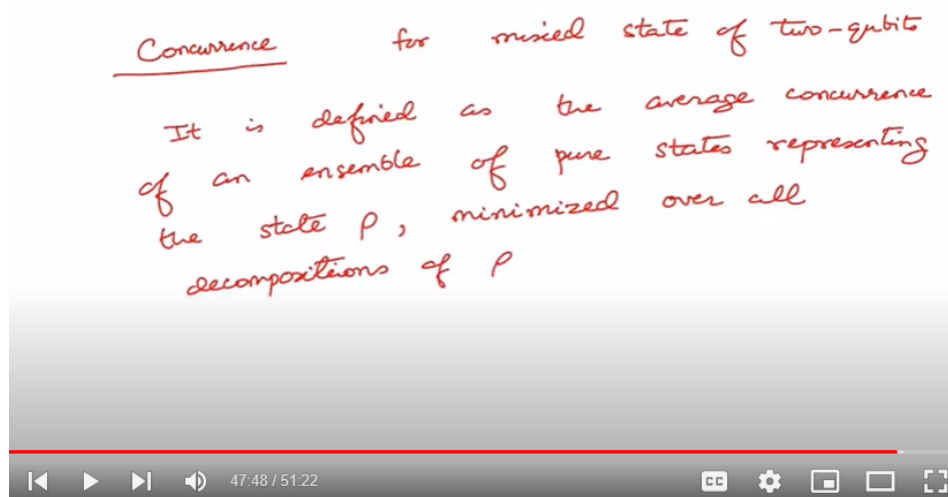 Concurrence for mixed state of two-qubits
It is defined as the average concurrence
of an ensemble of pure states representing
the state ρ, minimized over all
decompositions of ρ
47:48 / 51:22
CC